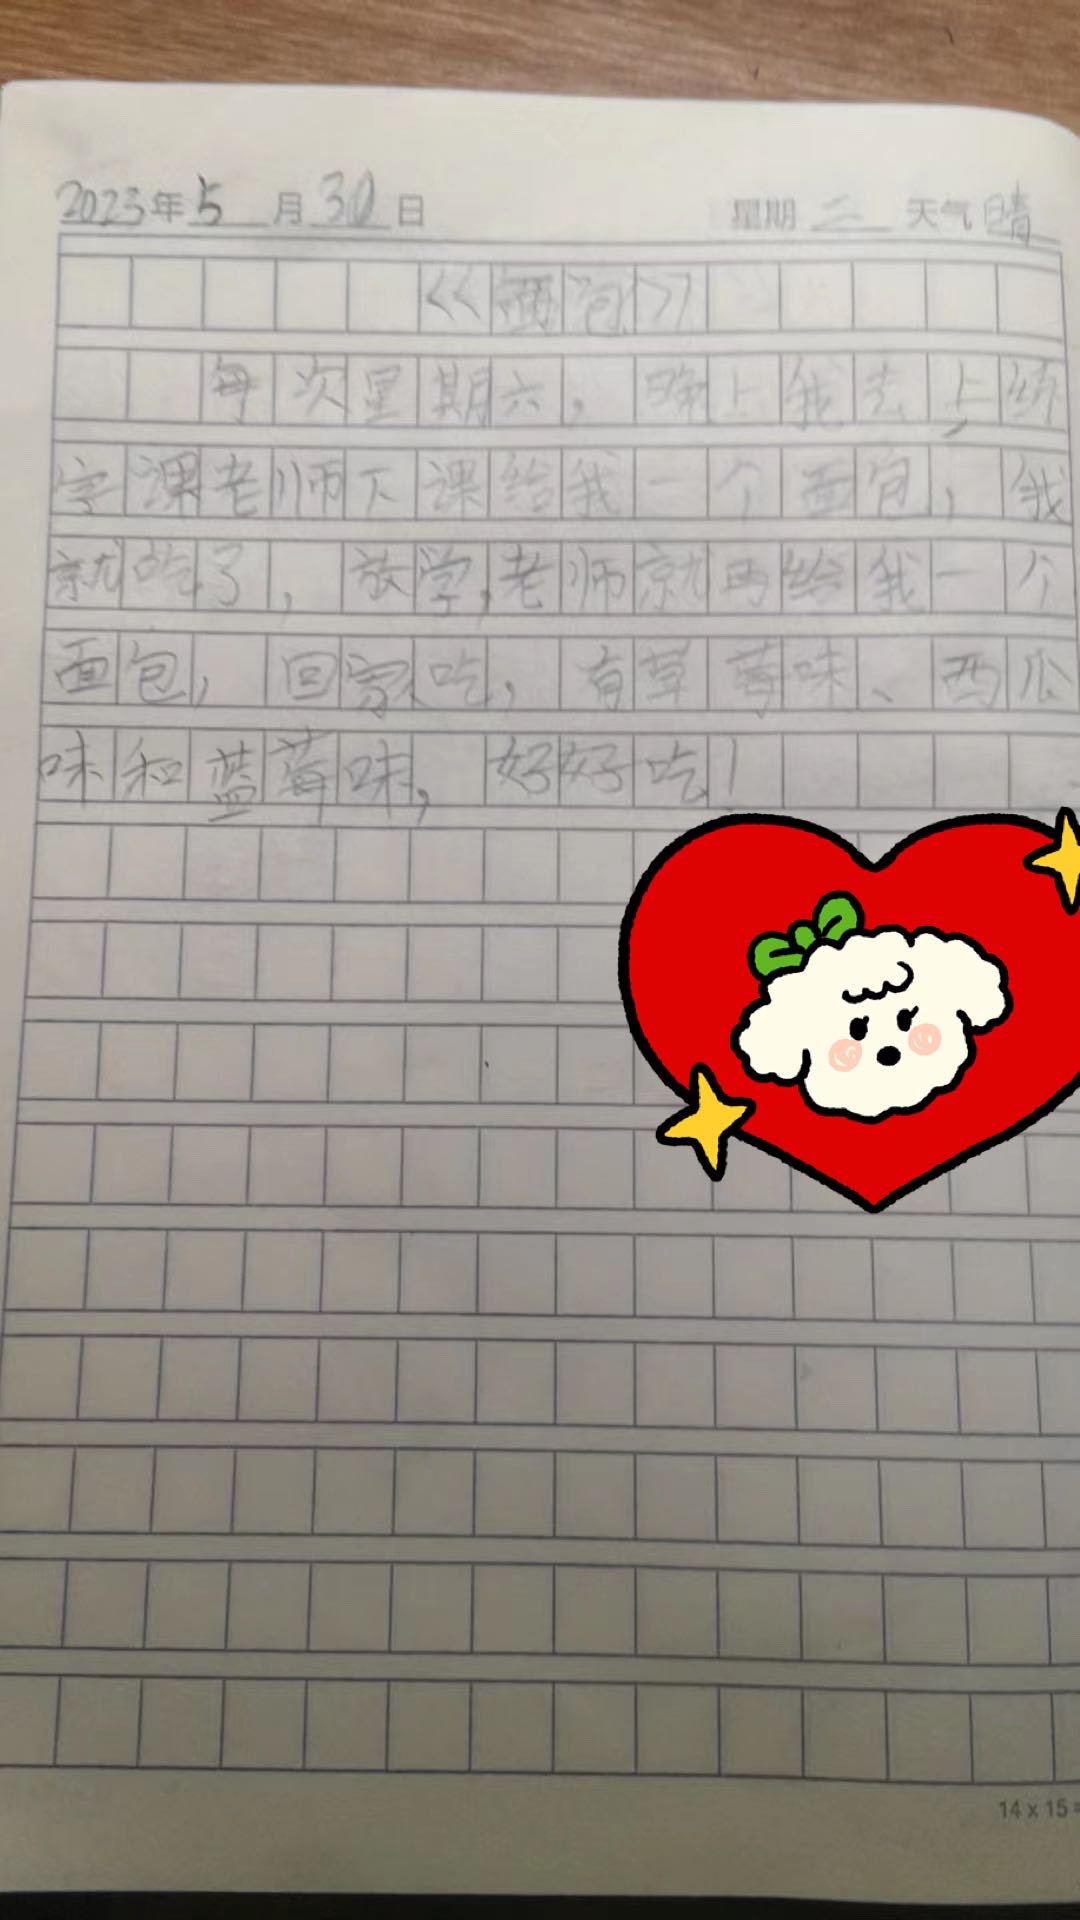 2023年5月30日 星期二 天气晴
<<面包>>
每次星期六,晚上我去上练
字课老师下课给我一个面包,我
就吃了,放学,老师就再给我一个
面包,回家吃,有草莓味、西瓜
味和蓝莓味,好好吃!
14x15=